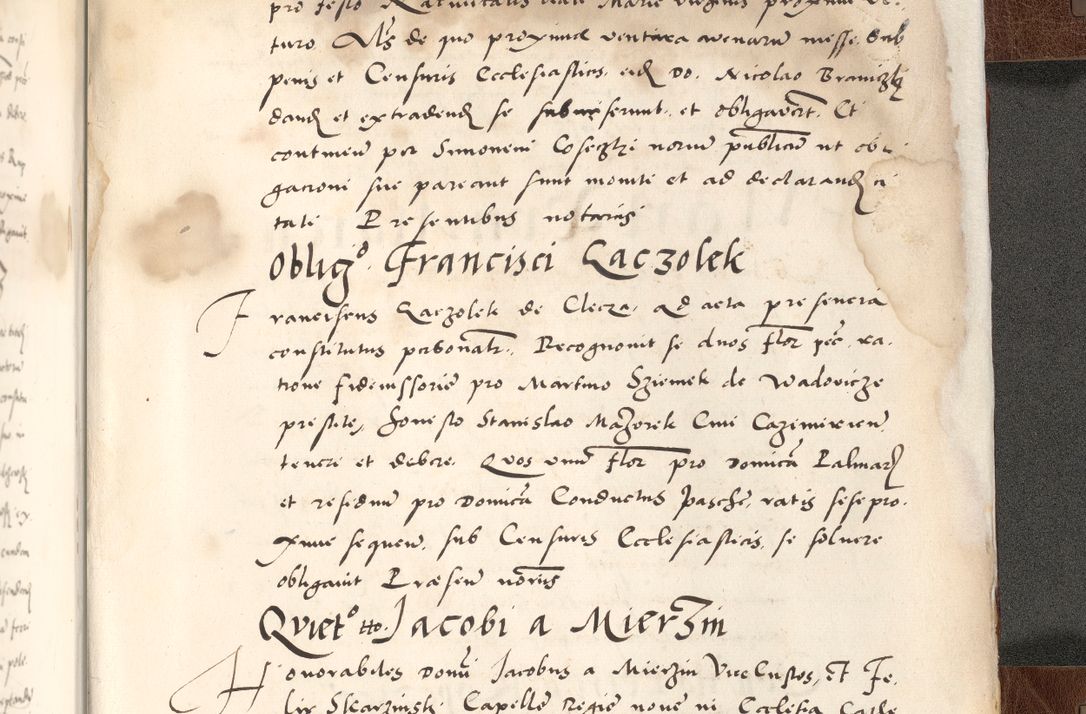 pro festo Nativitatis beate Marie virginis proxime ve-
turo. Als de quo proxima ventura avenarum messe. Sub
penis et Censuris Ecclesiasticis. eid Do. Nicolao Braniczki
dand et extradend se subiis serunt. et obligaverūt. Et
contineū per Simonem Coseczki norium publicum ut obli
gacioni sue pareant sunt moniti et ad declarand ci
tati Presentibus notariis
Obligo. Francisci Laczolek
Franciscus Laczolek de Clecza. ad acta presencia
constitutus personalr. Recognovit se duos flor pec. ra-
tione fideiussorie pro Martino Sziemek de Wadovicze
prestite, Honesto Stanislao Mazorek Civi Cazimirien
teneri et debere. Quos unū flor pro Domica Palmar
et residuū pro Domica Conductus Pasche, ratis sese pro-
xime sequen. sub Censuris Ecclesiasticis, se solvere
obligavit Præsen noriis
Quieto tto. Jacobi a Mierzin
Honorabiles Domi Jacobus a Mierzin ViceCustos, et Fe-
lix Skarzinski Capelle Regie nove in Ecclesia Cathe